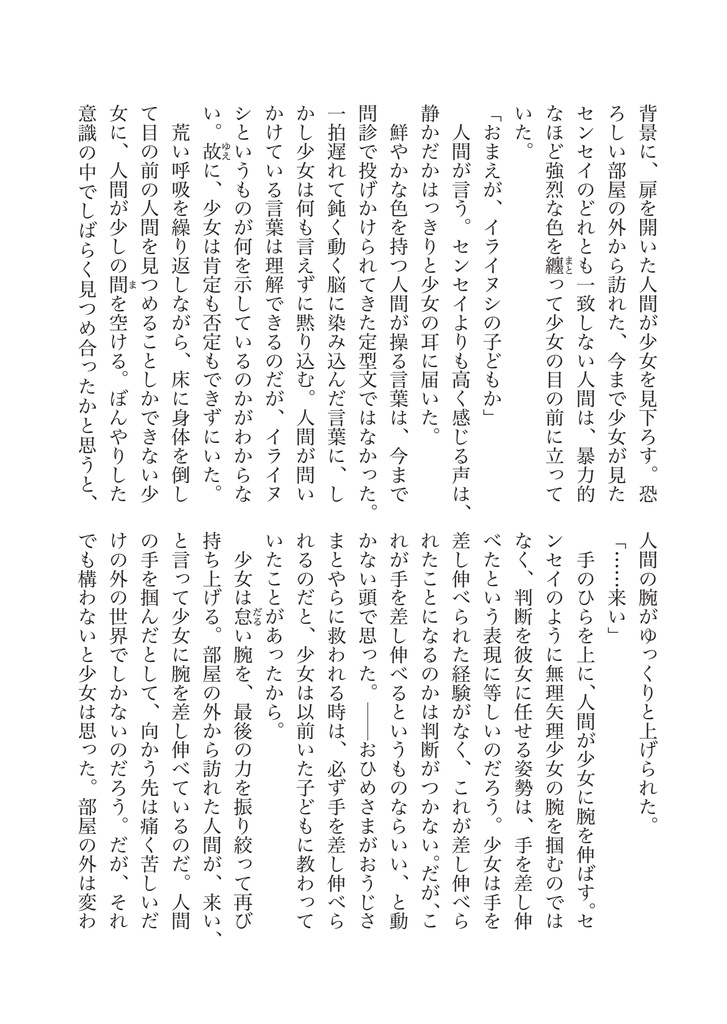 背景に、扉を開いた人間が少女を見下ろす。恐
ろしい部屋の外から訪れた、今まで少女が見た
センセイのどれとも一致しない人間は、暴力的
なほど強烈な色を纏って少女の目の前に立って
いた。
「おまえが、イライヌシの子どもか」
人間が言う。センセイよりも高く感じる声は、
静かだかはっきりと少女の耳に届いた。
鮮やかな色を持つ人間が操る言葉は、今まで
問診で投げかけられてきた定型文ではなかった。
一拍遅れて鈍く動く脳に染み込んだ言葉に、し
かし少女は何も言えずに黙り込む。人間が問い
かけている言葉は理解できるのだが、イライヌ
シというものが何を示しているのかがわからな
い。故に、少女は肯定も否定もできずにいた。
荒い呼吸を繰り返しながら、床に身体を倒し
て目の前の人間を見つめることしかできない少
女に、人間が少しの間を空ける。ぼんやりした
意識の中でしばらく見つめ合ったかと思うと、
人間の腕がゆっくりと上げられた。
「……来い」
手のひらを上に、人間が少女に腕を伸ばす。セ
ンセイのように無理矢理少女の腕を掴むのでは
なく、判断を彼女に任せる姿勢は、手を差し伸
べたという表現に等しいのだろう。少女は手を
差し伸べられた経験がなく、これが差し伸べら
れたことになるのかは判断がつかない。だが、こ
れが手を差し伸べるというものならいい、と動
かない頭で思った。――おひめさまがおうじさ
まとやらに救われる時は、必ず手を差し伸べら
れるのだと、少女は以前いた子どもに教わって
いたことがあったから。
少女は怠い腕を、最後の力を振り絞って再び
持ち上げる。部屋の外から訪れた人間が、来い、
と言って少女に腕を差し伸べているのだ。人間
の手を掴んだとして、向かう先は痛く苦しいだ
けの外の世界でしかないのだろう。だが、それ
でも構わないと少女は思った。部屋の外は変わ